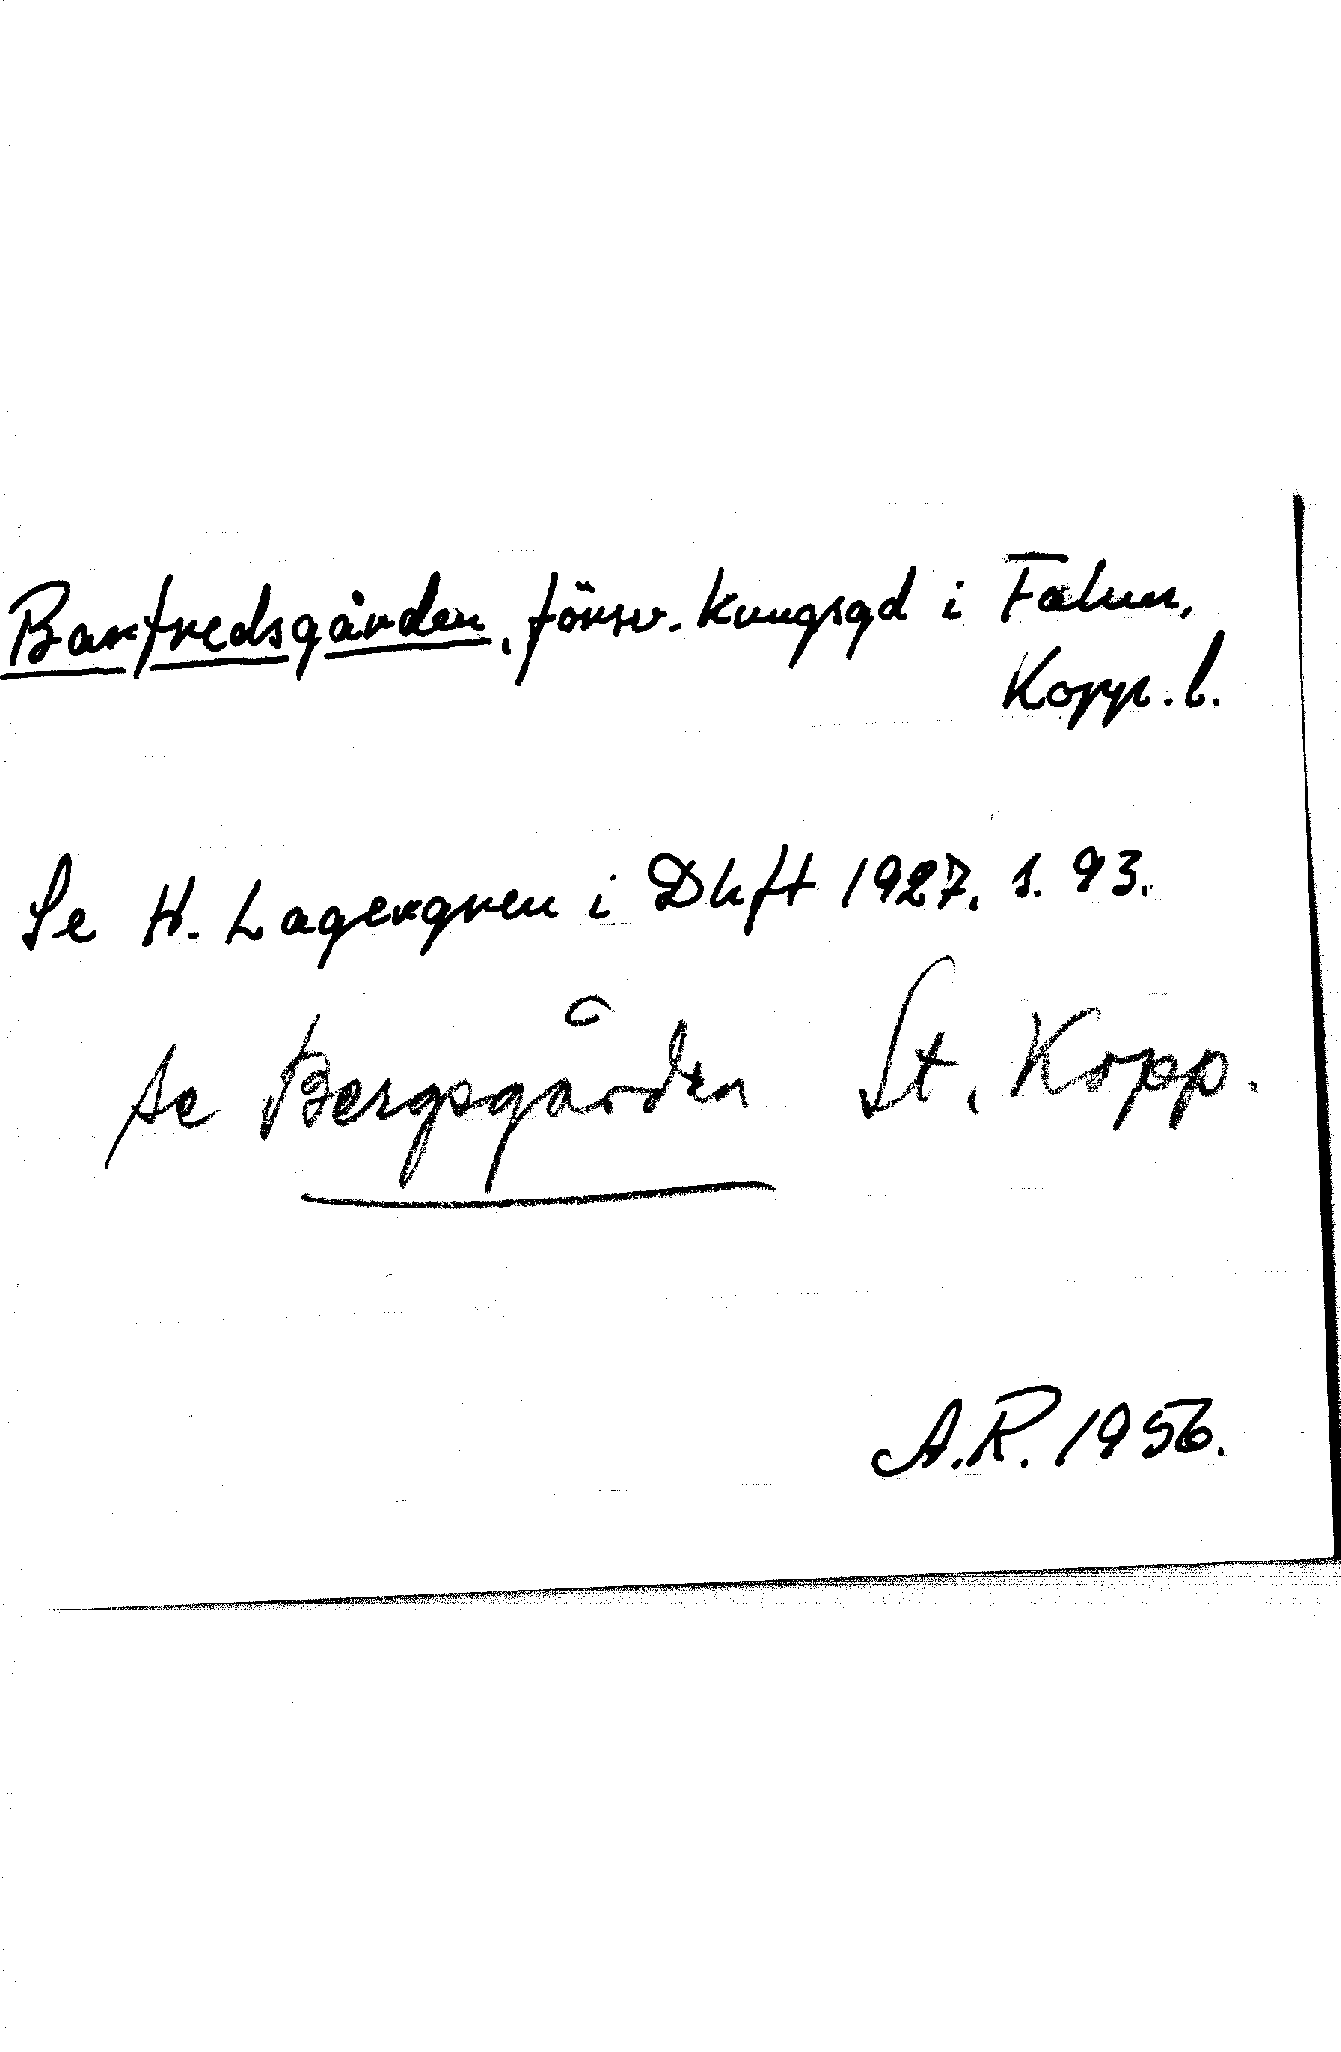 Barfredsgården, försv. kungsgd i Falun,
Kopp. l.
Se H. Lagergren i Dhft 1927, s. 93.
se Bergsgården St. Kopp.
A.R. 1956.